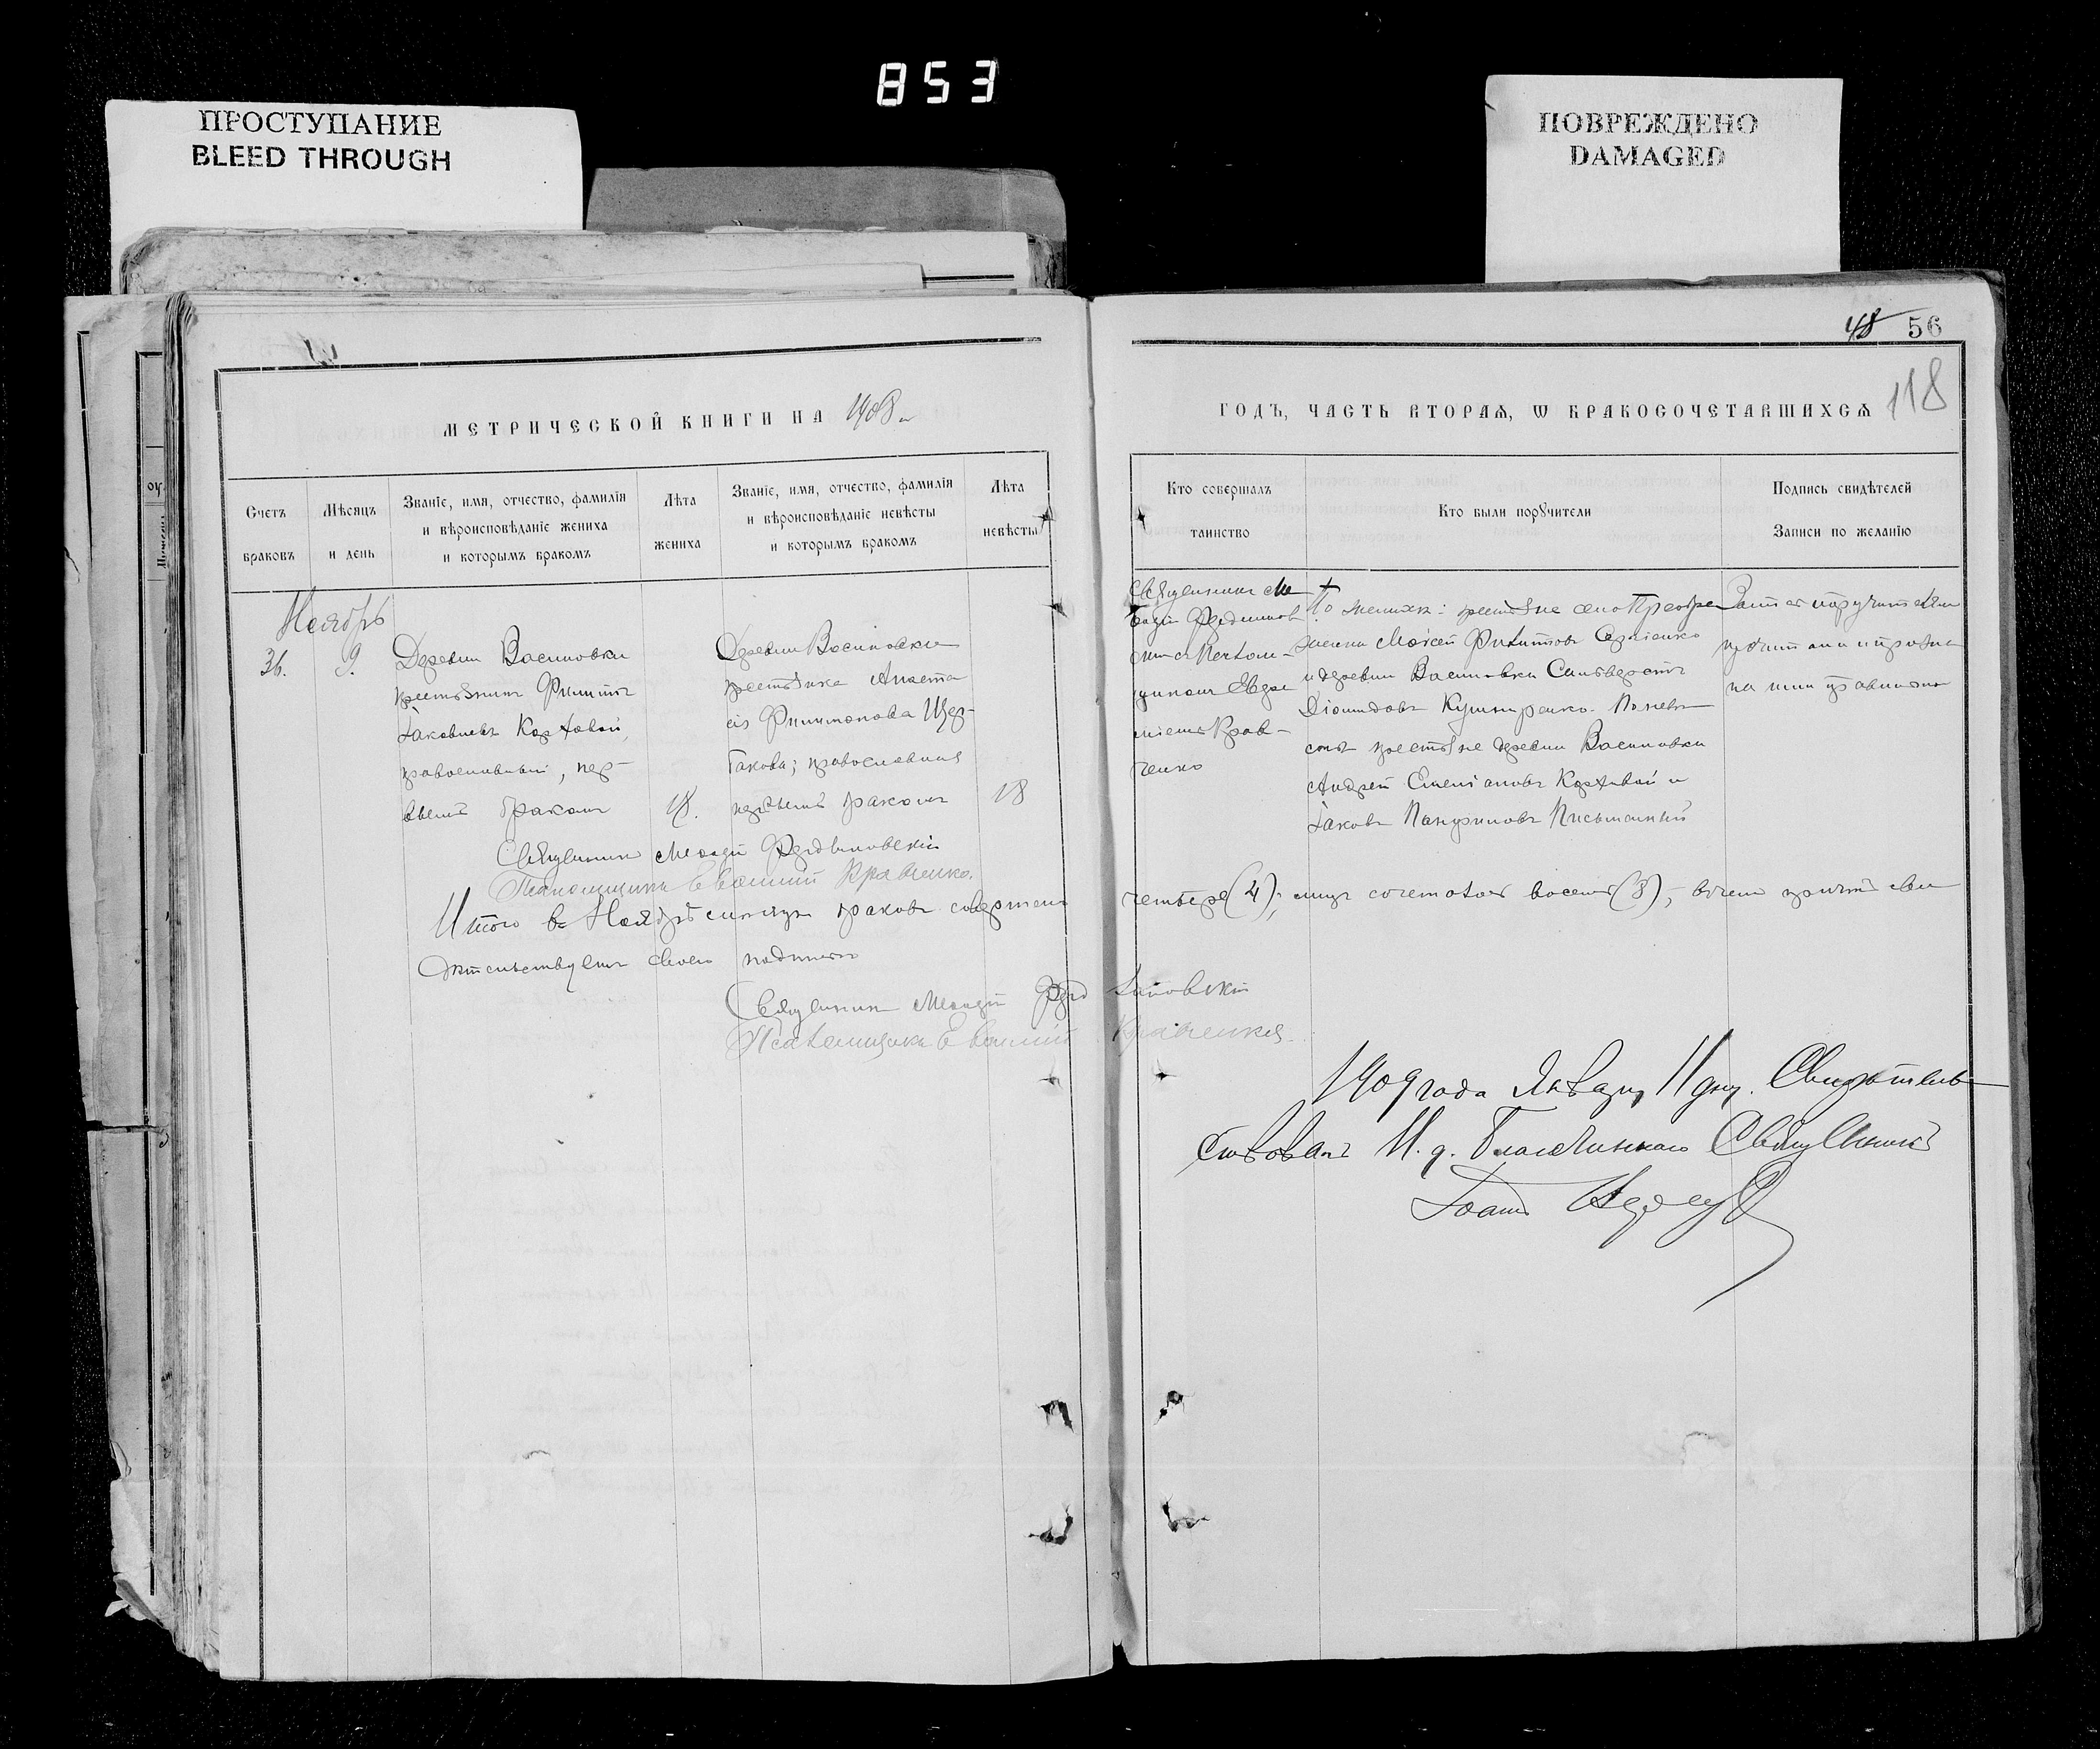 853
ПРОСТУПАНИЕ
BLEED THROUGH
ПОВРЕЖДЕНО
DAMAGED
48 56
118
МЕТРИЧЕСКОЙ КНИГИ НА 1908 г.
ГОДЪ, ЧАСТЬ ВТОРАЯ, Ѡ БРАКОСОЧЕТАВШИХСЯ
Счетъ
браковъ
Мѣсяцъ
и день
Званіе, имя, отчество, фамилія
и вѣроисповѣданіе жениха
и которымъ бракомъ
Лѣта
жениха
Званіе, имя, отчество, фамилія
и вѣроисповѣданіе невѣсты
и которымъ бракомъ
Лѣта
невѣсты
Кто совершалъ
таинство
Кто были порꙋчители
Подпись свидѣтелей
Записи по желанію
Ноябрь
36.
9.
Деревни Васиновки
крестьянинъ Филиппъ
Іаковлевъ Коржовой,
православный, пер-
вымъ бракомъ
18.
Деревни Васиновки
крестьянка Анаста
сія Филимонова Щер-
бакова; православная
первымъ бракомъ
18
Священникъ Ме
ѳодій Федоринов
скій съ Псалом-
щикомъ Евѳи
міемъ Крав-
ченко
По женихѣ: крестьяне села Преобра
женки Моѵсей Филиповъ Сергіенко
и деревни Васиновки Сильверстъ
Діомидовъ Кушниренко. По невѣ
стѣ крестьяне деревни Васиновки
Андрей Емеліановъ Коржовой и
Іаковъ Панфиловъ Письменный
Священникъ Меѳодій Федориновскій
Псаломщикъ Евѳимій Кравченко.
Итого въ Ноябрѣ мѣсяцѣ браковъ совершено
четыре (4); лицъ сочеталось восемь (8), въ чемъ причтъ сви
дѣтельствуетъ своею подписью
Священникъ Меѳодій Федориновскій
Псаломщикъ Евѳимій Кравченко.
1909 года Января 11 дня. Свидѣтель
ствовалъ И. д. Благочиннаго Священникъ
Іоаннъ